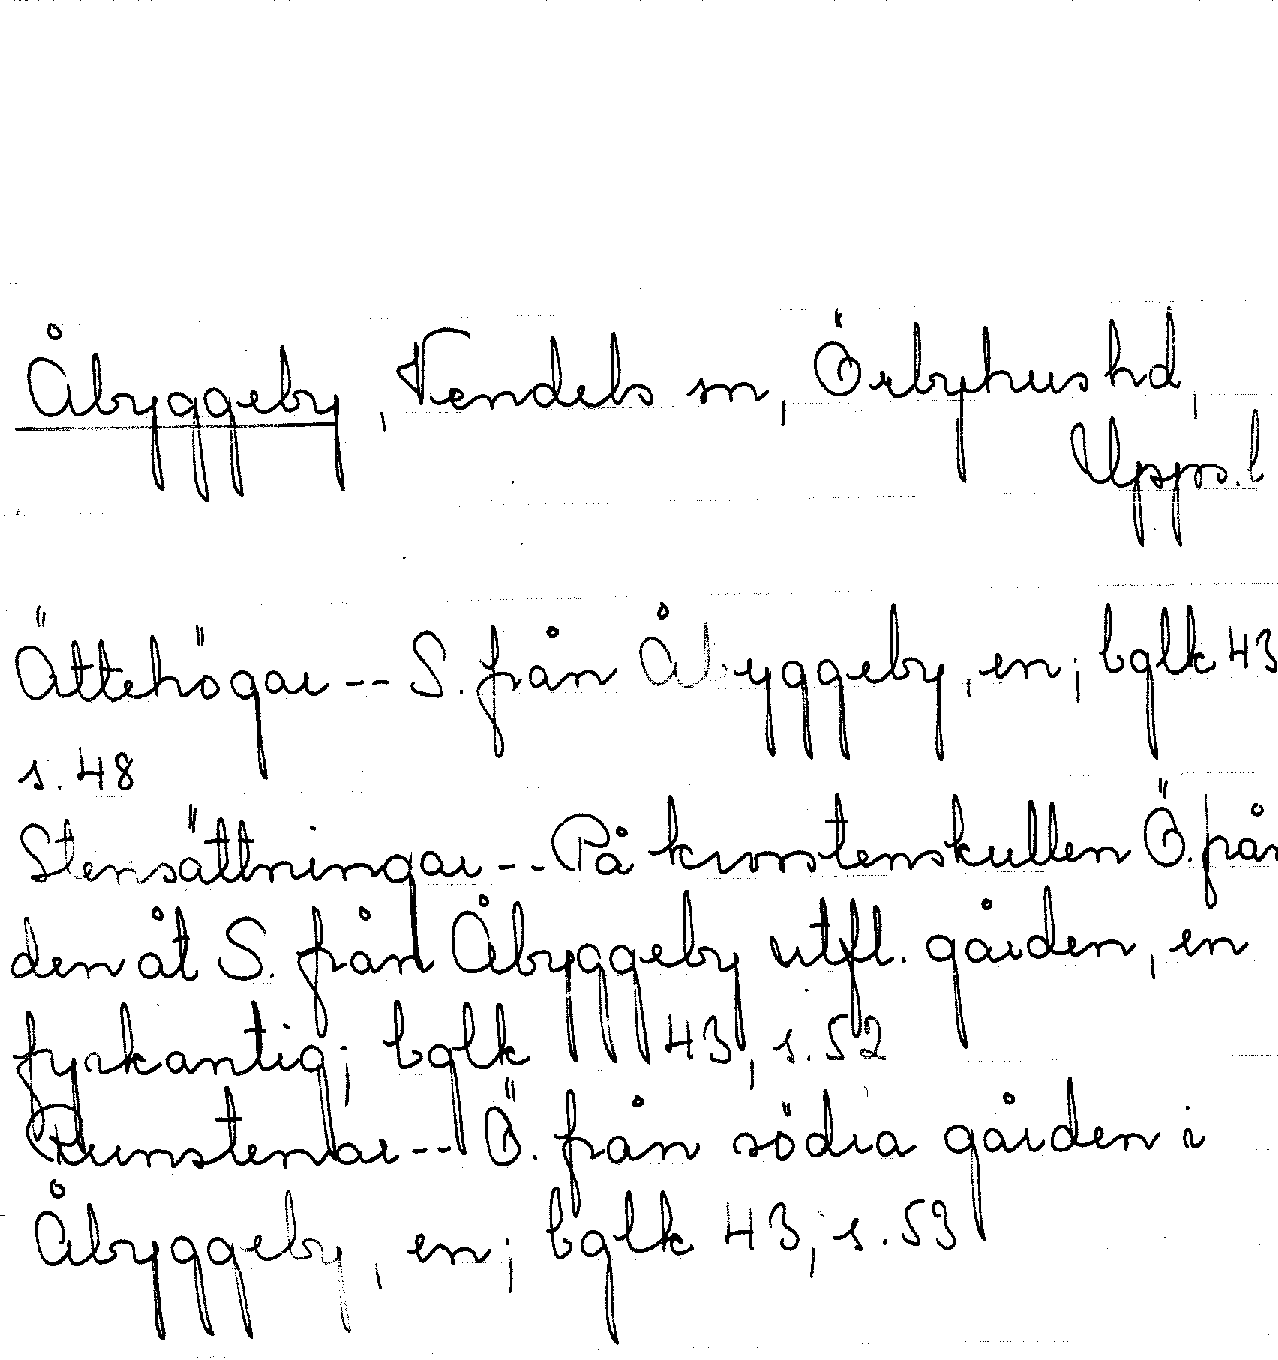 Åbyggeby, Vendels sn, Örbyhus hd,
Upps. l
Ättehögar -- S. från Åbyggeby, en; bglk 43
s. 48
Stensättningar -- På kvarnstenskullen Ö. från
den åt S. från Åbyggeby utfl. gården, en
fyrkantig; bglk 43, s. 52
Runstenar -- Ö. från södra gården i
Åbyggeby, en; bglk 43, s. 53